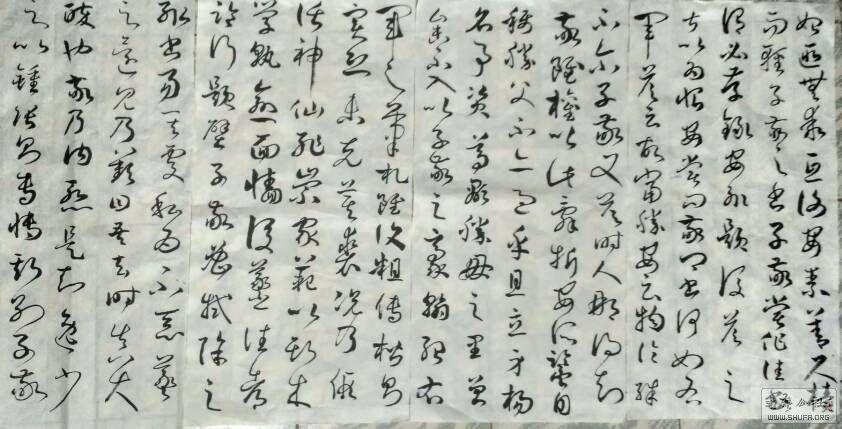 始匪無乖互謝安素善尺牘
而輕子敬之書子敬嘗作佳書
謂必存錄安輒題後答之
甚以為恨安嘗問敬卿書何如右
軍答云故當勝安云物論殊
不爾子敬又答時人那得知
敬雖權以此辭折安所鑒自
稱勝父不亦過乎且立身揚
名事資尊顯勝母之里曾
參不入以子敬之豪翰紹右
軍之筆札雖復粗傳楷則
實恐未克箕裘況乃假
託神仙恥崇家範以斯成
學孰愈面牆後羲之往都
臨行題壁子敬密拭除之
輒書易其處私為不惡羲
之還見乃歎曰吾去時真大
醉也敬乃內慚是知逸少
之比鍾張則專博斯別子敬
WWW.SHUFA.ORG